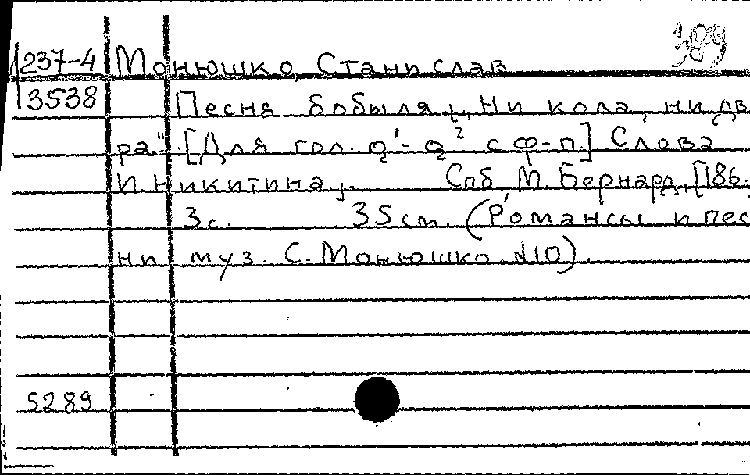 237-4 Монюшко, Станислав 389
3538 Песня бобыля „Ни кола, ни дв
ра". [Для гол. g¹-g² с ф-п.] Слова
И. Никитина. Спб М. Бернард, [186.
3 с. 35 см. (Романсы и пес
ни муз. С. Монюшко №10).
5289